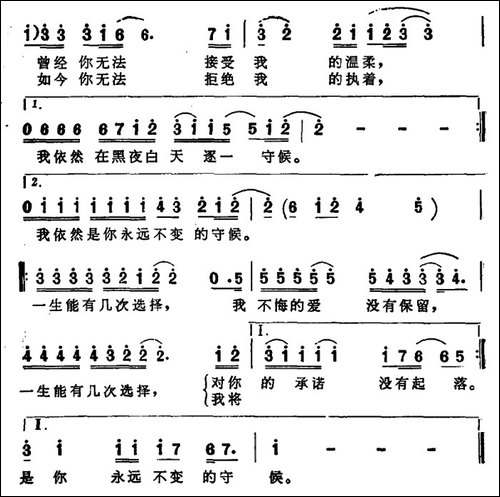 i)3 3 3 1 6 6. 7 i | 3 2 2 i i 2 3 3
曾经 你无法 接受 我 的温柔，
如今 你无法 拒绝 我 的执着，
1.
0 6 6 6 6 7 i 2 3 i i 5 5 i 2 | 2 - - - :
我依然 在黑夜白 天 逐一 守候。
2.
0 i i i i i i i 4 3 2 i 2 | 2 (6 i 2 4 5)
我依然是你永远不变 的守候。
: 3 3 3 3 3 2 i 2 2 0. 5 | 5 5 5 5 5 5 4 3 3 3 4.
一生能有几次选择， 我 不悔的爱 没有保留，
4 4 4 4 4 3 2 2 2. i 2 | I. 3 i i i i i 7 6 6 5 :
一生能有几次选择， {对你 的 承诺 没有起 落。
我将
I.
3 i i i i 7 6 7. | i - - -
是 你 永远 不变 的守 候。